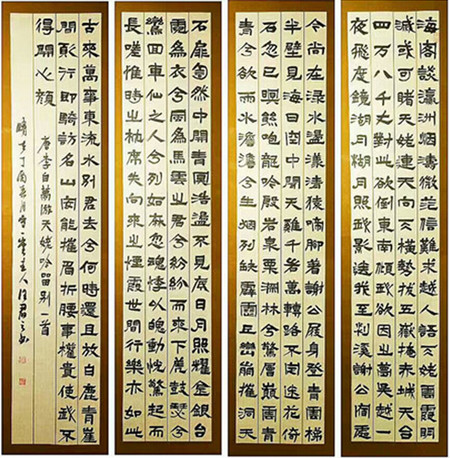 海客談瀛洲烟濤微茫信難求越人語天姥雲霞明
滅或可睹天姥連天向天橫勢拔五嶽掩赤城天台
四万八千丈對此欲倒東南傾我欲因之夢吳越一
夜飛度鏡湖月湖月照我影送我至剡溪謝公宿處
今尚在淥水盪漾清猿啼腳著謝公屐身登青雲梯
半壁見海日空中聞天雞千岩萬轉路不定迷花倚
石忽已暝熊咆龍吟殷岩泉栗深林兮驚層巔雲青
青兮欲雨水澹澹兮生烟列缺霹靂丘巒崩摧洞天
石扉訇然中開青冥浩盪不見底日月照耀金銀台
霓為衣兮風為馬雲之君兮紛紛而來下虎鼓瑟兮
鸞回車仙之人兮列如麻忽魂悸以魄動怳驚起而
長嗟惟時之枕席失向來之煙霞世間行樂亦如此
古來萬事東流水別君去兮何時還且放白鹿青崖
間須行即騎訪名山安能摧眉折腰事權貴使我不
得開心顏
唐李白夢游天姥吟留別一首
丁酉 主人